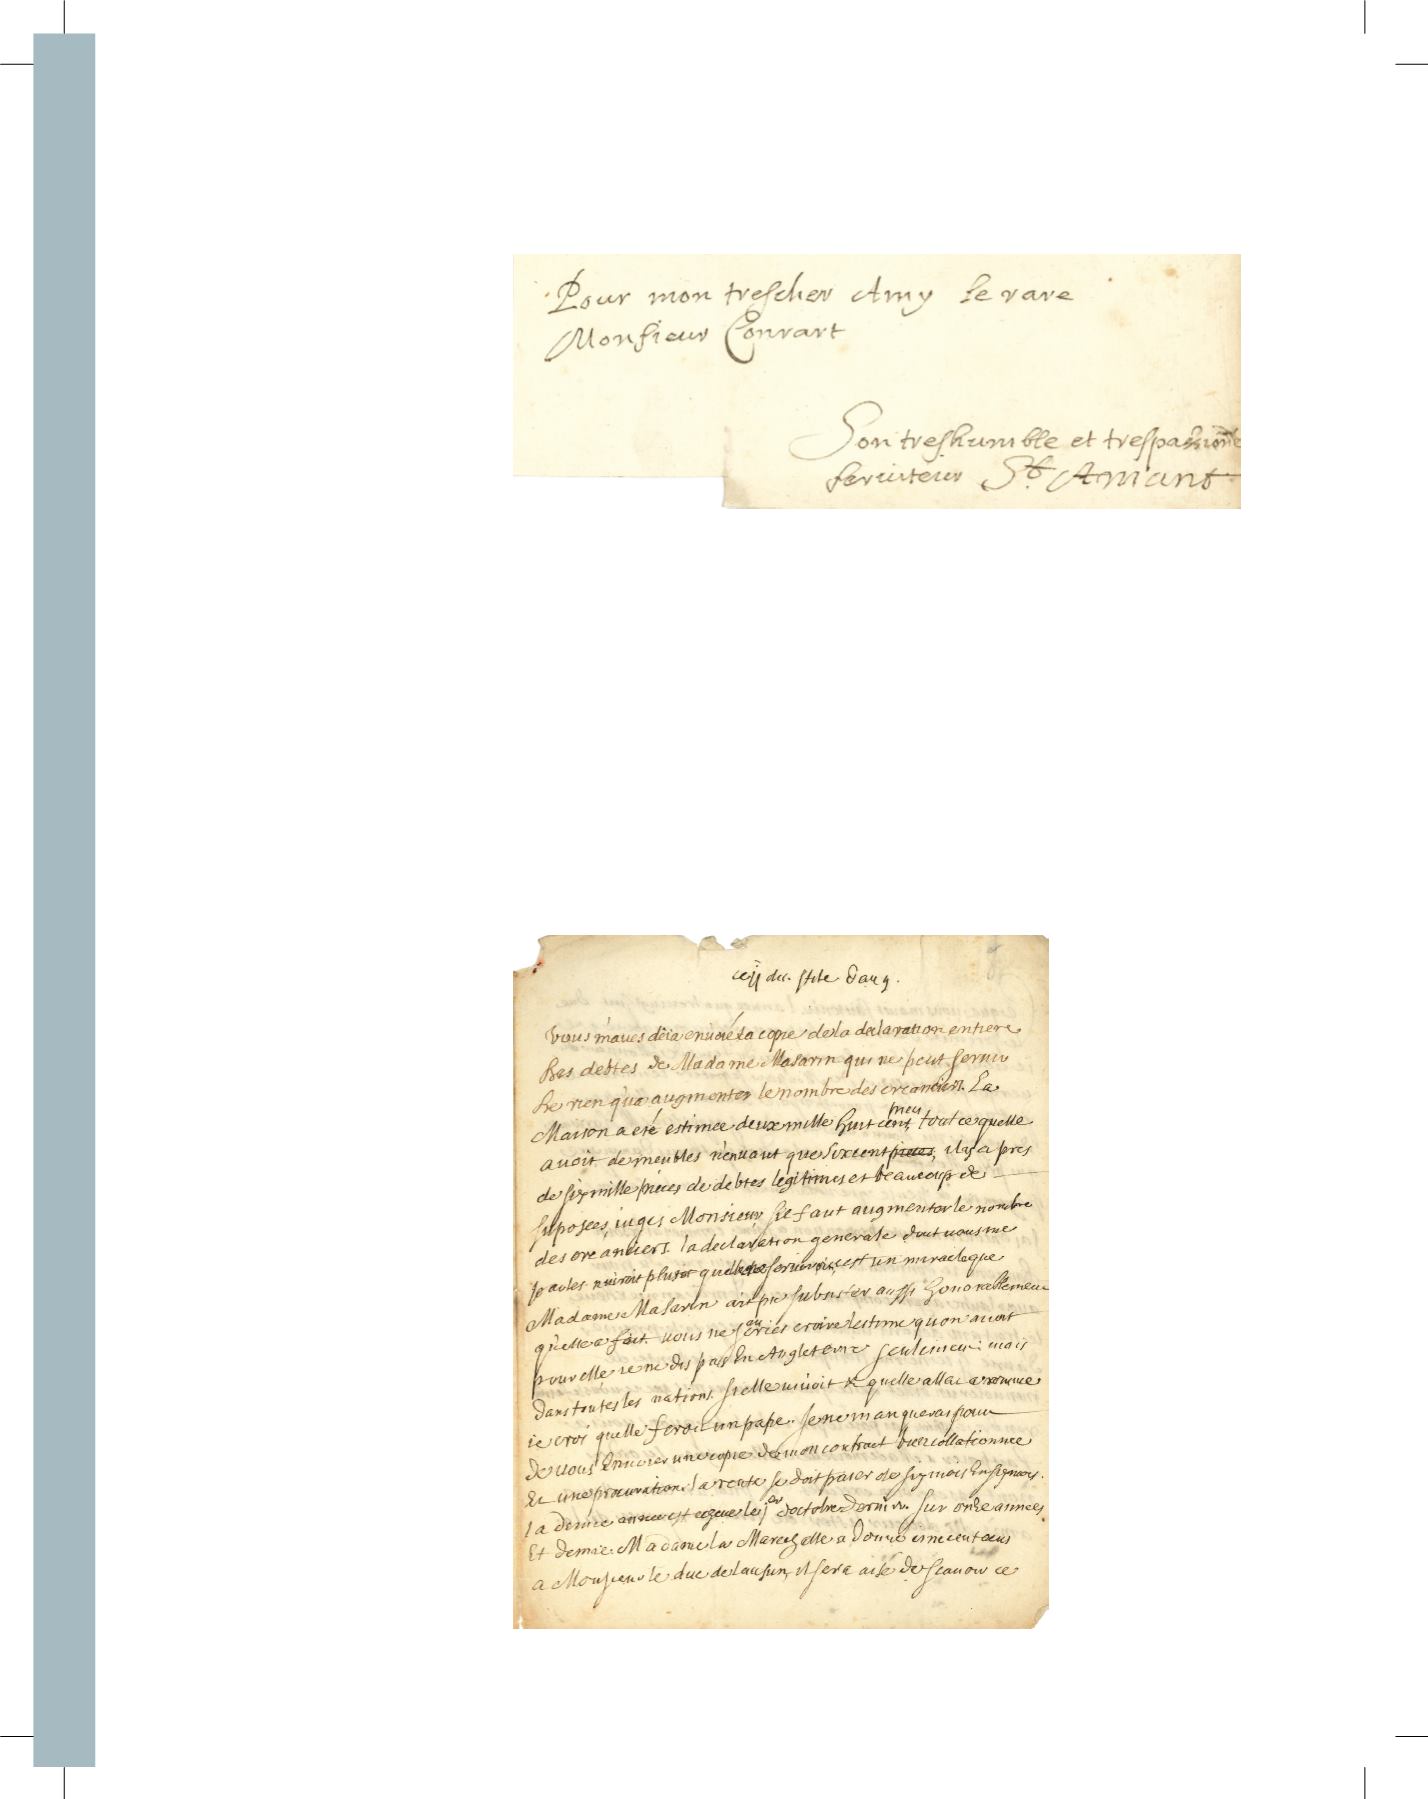 Pour mon trescher Amy le rare
Monsieur Conrart
Son treshumble et trespassionné
seruiteur St. Amant
du stile d'ang.
vous m'aues deia enuoié la copie de la declaration entiere
des debtes de Madame Masarin qui ne peut seruir
de rien qu'a augmenter le nombre des creanciers. La
Maison a eté estimee deux mille huit cent tout ce quelle
auoit de meubles n'en uaut que six cent pieces, il y a pres
de six mille pieces de debtes legitimes et beaucoup de
suposees, iuges Monsieur sil faut augmenter le nombre
des creanciers. la declaration generale dont uous me
parles nuiroit plutot quelle ne seruiroit, cest un miracle que
Madame Masarin ait pu subsister aussi honorablement
qu'elle a fait. uous ne sauries croire l'estime qu'on auoit
pour elle, ie ne dis pas En Angleterre seulement mais
dans toutes les nations. si elle uiuoit & quelle allat a romme
ie croi quelle feroit un pape. Je ne manquerai pour
de uous Enuoier une copie de mon contract bien collationnee
Et une procuration. la rente se doit paier de six mois En six mois.
la demie annee est le 1er d'octobre dernier. sur onze annees
Et demie. Madame la Marechalle a donné cinc cent ecus
a Monsieur le duc de lausun, il sera aisé de scauoir ce